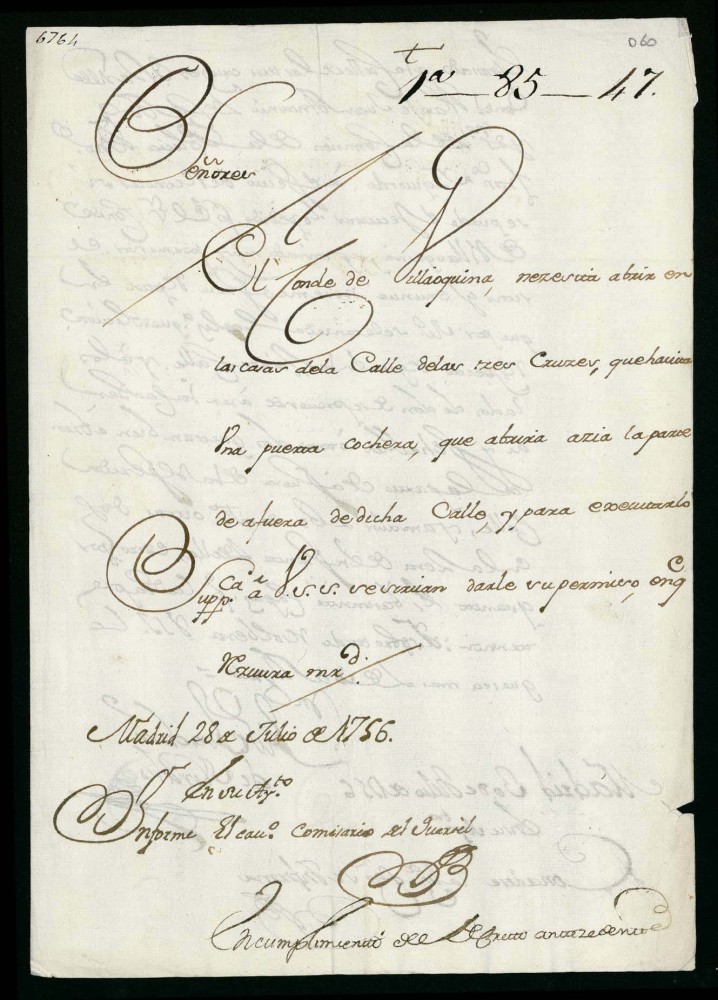 6764
060
1ª 85 47.
Señores
El Conde de Villaoquina, nezesita abrir en
las casas dela Calle delas tres Cruzes, que havita
Una puerta cochera, que abrira azia la parte
de afuera de dicha Calle, y para executarlo
Supp.ca a V.S.S. se sirvan darle su permiso, en q
Rezivira mrd.
Madrid 28 de Julio de 1756.
En su Ay.to
Informe El cau.º Comisario del Quartel
En cumplimiento del Decreto antezedente